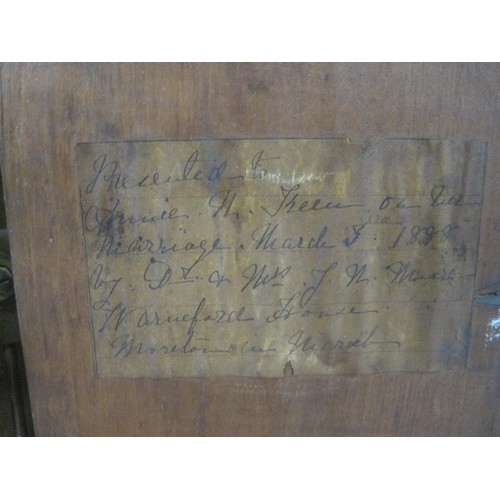 Presented to
Annie N. Keen on her
Marriage March 1888
by Dr. & Mrs. J. N. Moore
Warneford House
Moreton in Marsh